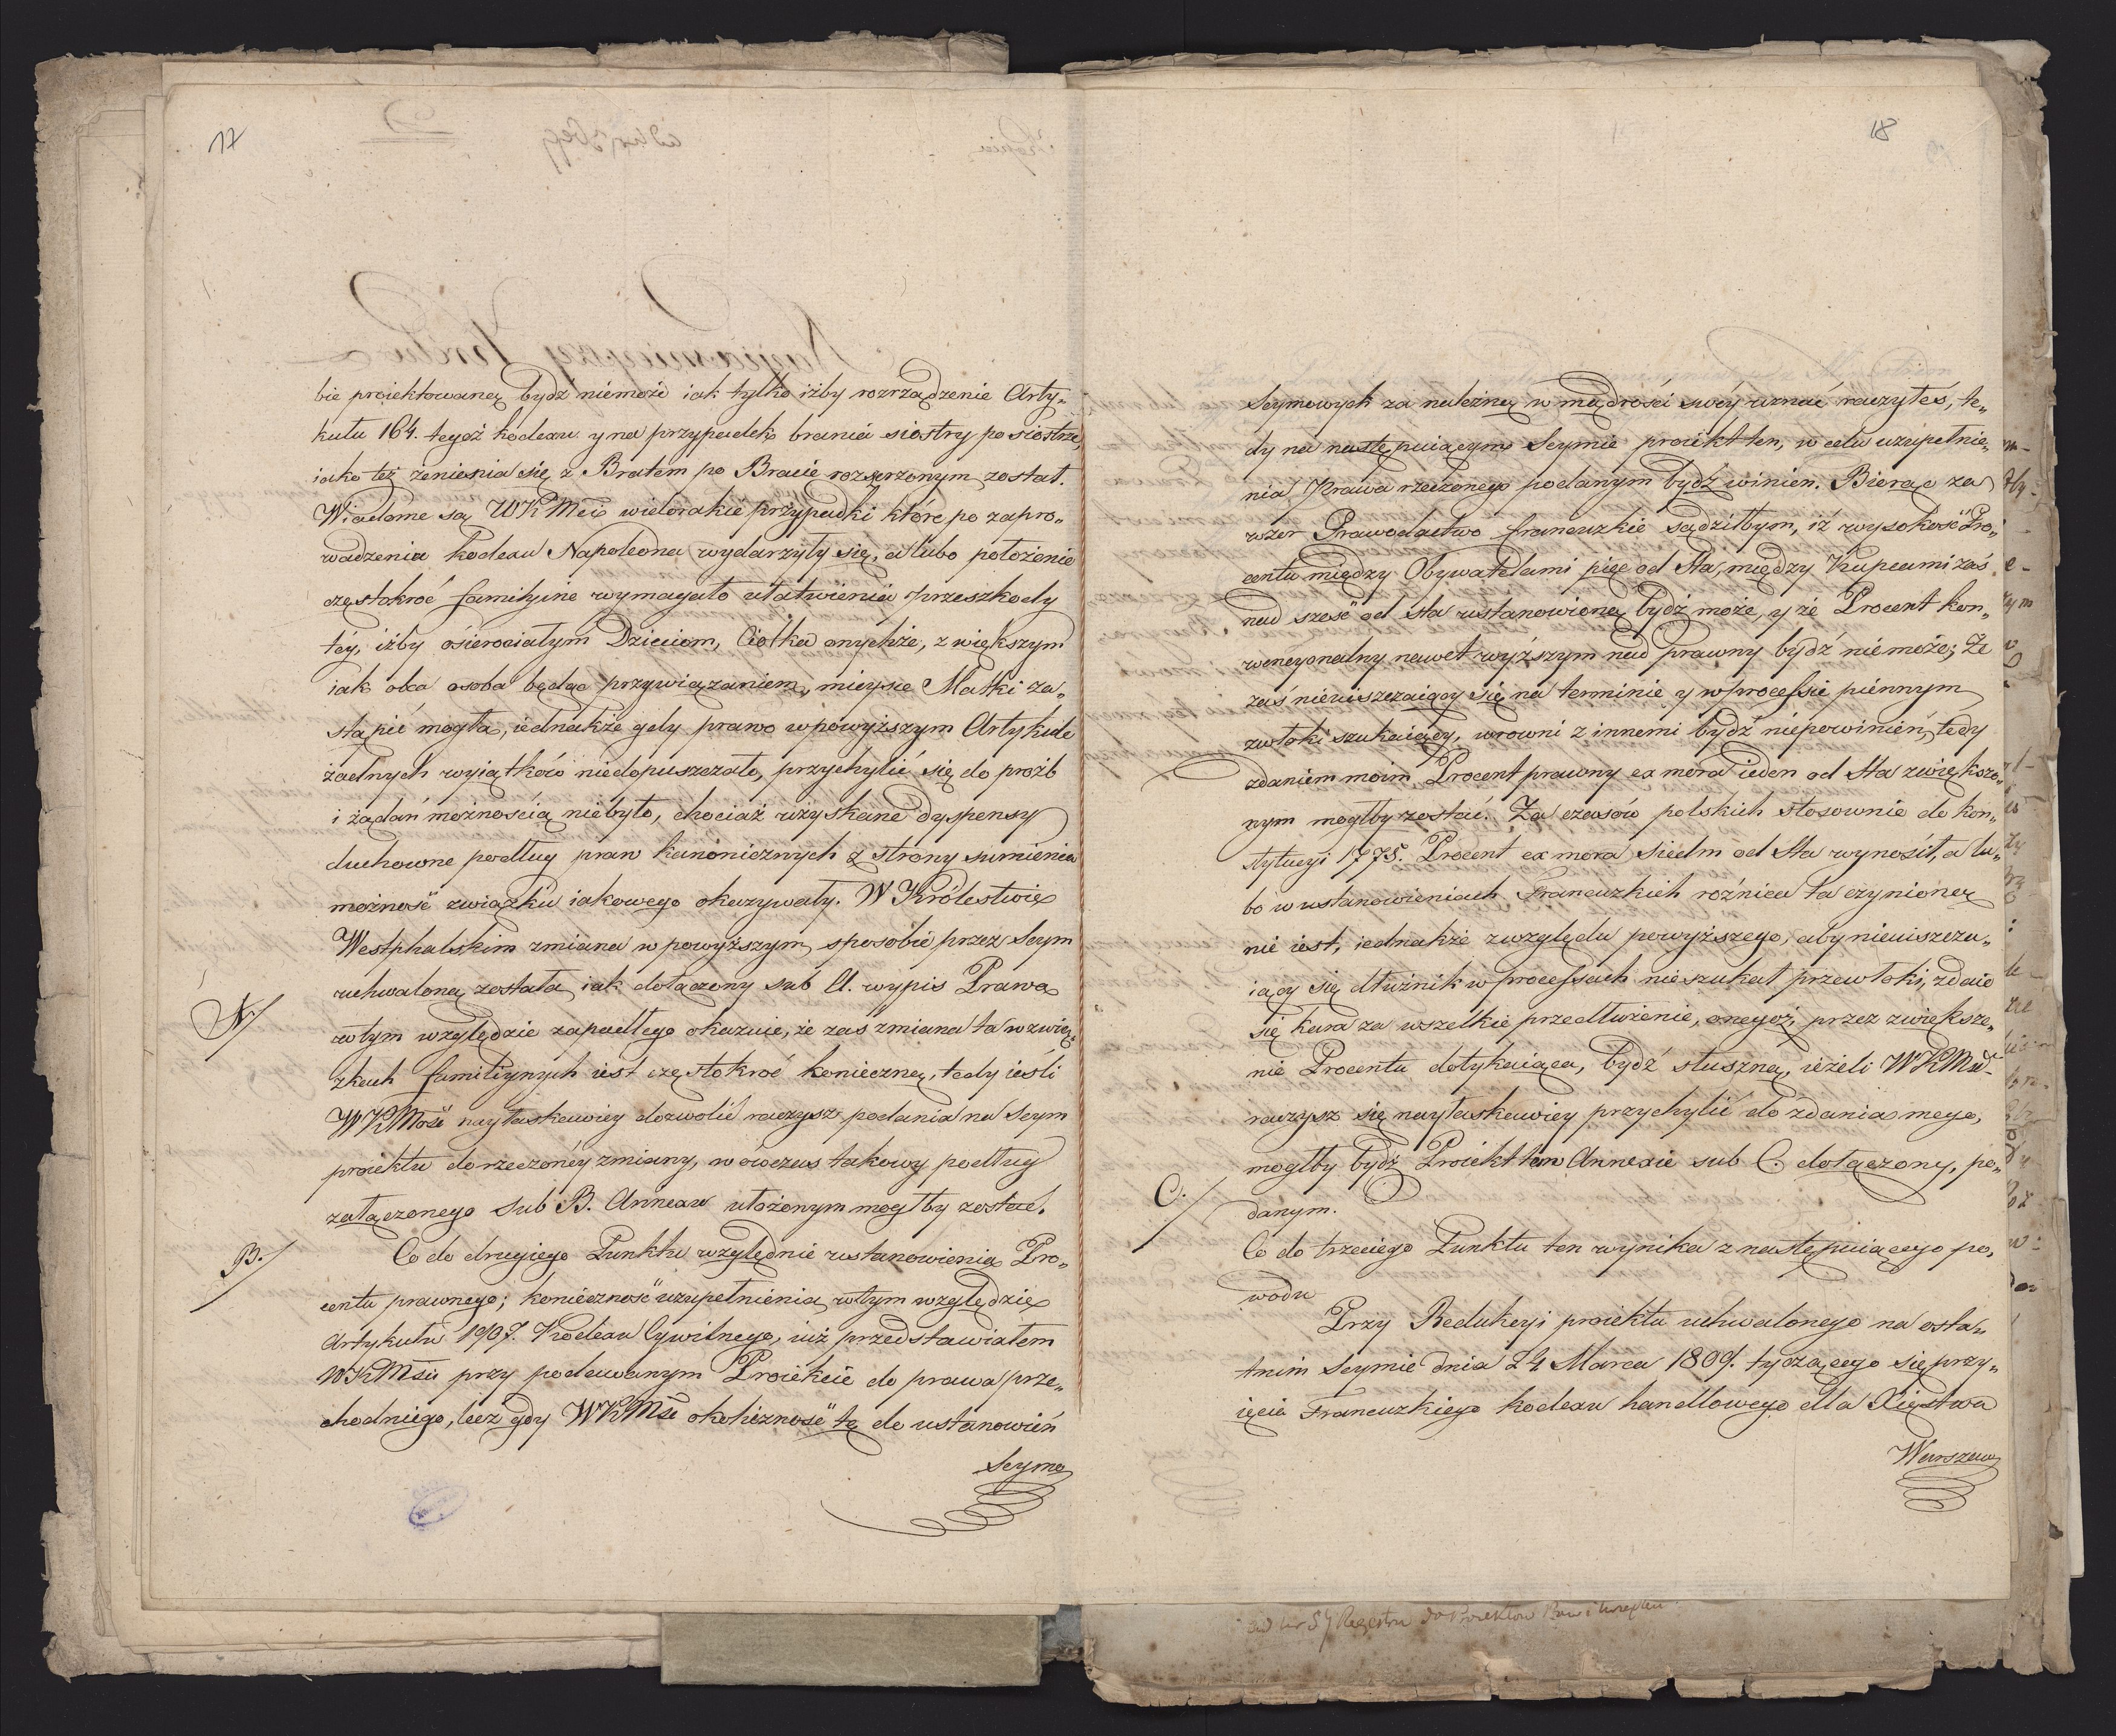 17
bie proiektowaną bydź niemoże iak tylko iżby rozrządzenie Arty„
kułu 164. tegoż kodexu y na przypadek brania siostry po siostrze,
iako też żenienia się z Bratem po Bracie rozszerzonym został.
Wiadome są WKMci wielorakie przypadki które po zapro„
wadzeniu kodexu Napoleona wydarzyły się, a lubo położenie
częstokroć familyine wymagało ułatwienia przeszkody
téy, iżby osierociałym Dzieciom, Ciotka onychże, z większym
iak obca osoba będąc przywiązaniem, mieysce Matki za„
stąpić mogła, iednakże gdy prawo w powyższym Artykule
żadnych wyiątków niedopuszczało, przychylić się do proźb
i żądań możnością niebyło, chociaż uzyskane dyspensy
duchowne podług praw kanonicznych z strony sumienia
możność związku iakowego okazywały. W Królestwie
Westphalskim zmiana w powyższym sposobie przez Seym
uchwaloną została iak dołączony sub A. wypis Prawa
w tym względzie zapadłego okazuie, że zaś zmiana ta w zwią„
zkach familiynych iest częstokroć konieczną, tedy ieśli
WKMość nayłaskawiey dozwolić raczysz podania na Seym
proiektu do rzeczonéy zmiany, w ówczas takowy podług
załączonego sub B. Annexu ułożonym mogłby zostać.
B./
Co do drugiego Punktu względnie ustanowienia Pro„
centu prawnego; konieczność uzupełnienia w tym względzie
Artykułu 1907. Kodexu Cywilnego, iuż przedstawiałem
WKMści przy podawanym Proiekcie do prawa prze„
chodniego, lecz gdy WKMść okoliczność tę do ustanowień
Seymo
18
Seymowych za należną w mądrości swéy uznać raczyłeś, te„
dy na następuiącym Seymie proiekt ten, w celu uzupełnie„
nia Prawa rzeczonego podanym bydź winien. Biorąc za
wzór Prawodactwo francuzkie sądziłbym, iż wysokość Pro„
centu między Obywatelami pięć od sta, między Kupcami zaś
nad sześć od sta ustanowioną bydź może, y że Procent kon„
wencyonalny nawet wyższym nad prawny bydź niemoże; że
zaś nieuiszczaiący się na terminie y w processie piennym
zwłoki szukaiący, w równi z innemi bydź niepowinien, tedy
zdaniem moim Procent prawny ex mora ieden od sta zwiększo„
nym mogłby zostać. Za czasów polskich stosownie do kon„
stytucyi 1775. Procent ex mora siedm od sta wynosił, a lu„
bo w ustanowieniach Francuzkich różnica ta czynioną
nie iest, iednakże z względu powyższego, aby nieuiszcza„
iący się dłużnik w processach nie szukał przewłoki, zdaie
się kara za wszelkie przedłużenie, onegoż, przez zwiększe„
nie Procentu dotykaiąca, bydź słuszną, ieżeli WKMść
raczysz się nayłaskawiey przychylić do zdania mego,
mogłby bydź Proiekt ten Annexie sub C. dołączony, po„
C./
danym.
Co do trzeciego Punktu ten wynika z następuiącego po„
wodu
Przy Redakcyi proiektu uchwalonego na osta„
tnim Seymie dnia 24 Marca 1809. tyczącego się przy„
ięcia Francuzkiego kodexu handlowego dla Xięstwa
Warszaw